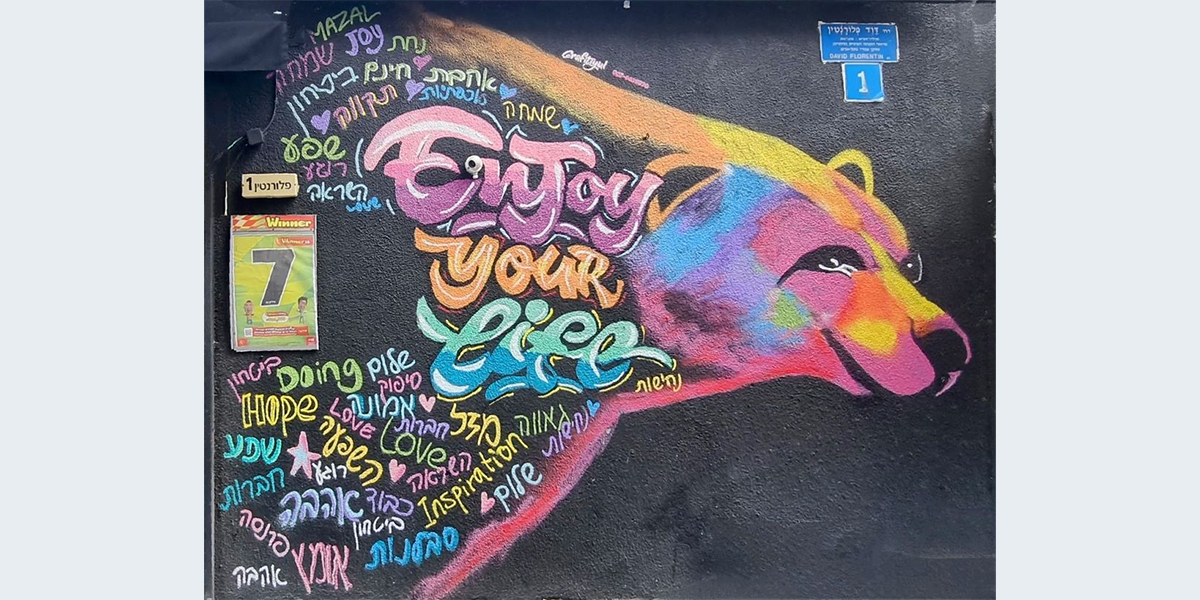 MAZAL
JOY
נחת
שמחה
אהבת חינם
ביטחון
תקווה
אכפתיות
שמחה
שפע
רוגע
השראה
Enjoy
Your
Life
רח' דוד פלורנטין
DAVID FLORENTIN
1
פלורנטין 1
Winner
Winner
7
ביטחון
Doing
שלום
סיפוק
נחישות
HOPE
Love
אמונה
חברות
מזל
גאווה
נחישות
Love
השפעה
שפע
רוגע
השראה
Inspiration
שלום
חברות
אהבה
כבוד
ביטחון
פרנסה
אומץ
סבלנות
אהבה